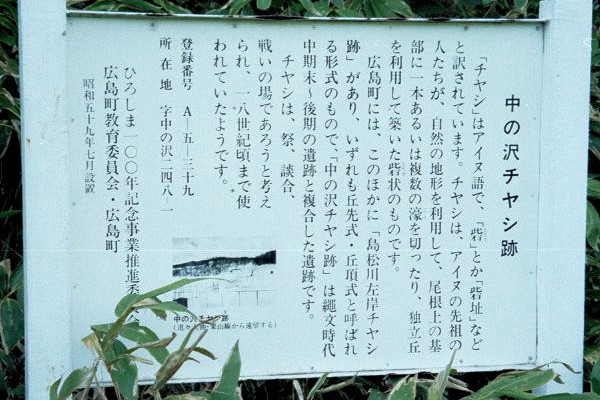 中の沢チャシ跡
「チャシ」はアイヌ語で、「砦」とか「砦址」など
と訳されています。チャシは、アイヌの先祖の
人たちが、自然の地形を利用して、尾根上の基
部に一本あるいは複数の濠を切ったり、独立丘
を利用して築いた砦状のものです。
広島町には、このほかに「島松川左岸チャシ
跡」があり、いずれも丘先式・丘頂式と呼ばれ
る形式のもので「中の沢チャシ跡」は縄文時代
中期末～後期の遺跡と複合した遺跡です。
チャシは、祭、談合、
戦いの場であろうと考え
られ、一八世紀頃まで使
われていたようです。
登録番号 A―五―三十九
所在地 字中の沢二四八―一
ひろしま一〇〇年記念事業推進委員会
広島町教育委員会・広島町
昭和五十九年七月設置
中の沢チャシ跡
(道々大曲・栗山線から遠望する)